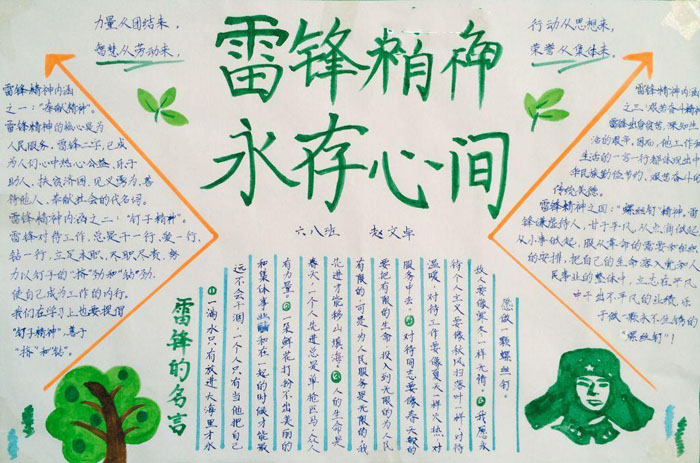 力量从团结来，
智慧从劳动来，
雷锋精神
永存心间
行动从思想来，
荣誉从集体来。
六八班 赵文卓
雷锋精神内涵
之一："奉献精神"。
雷锋精神的核心是为
人民服务，雷锋二字，已成
为人们心中热心公益，乐于
助人，扶贫济困，见义勇为，善
待他人，奉献社会的代名词。
雷锋精神内涵之二："钉子精神"。
雷锋对待工作，总是干一行，爱一行，
钻一行，立足本职，不职尽责，努
力以钉子的"挤"劲和"钻"劲，
使自己成为工作的内行。
我们在学习上也要提倡
"钉子精神"，善于
"挤"和"钻"。
雷锋精神内涵
之三：艰苦奋斗精神
雷锋出身贫苦，深知生
活的艰辛，因而，他工作和
生活的一言一行都体现出中
华民族勤俭节约、艰苦奋斗的
传统美德。
雷锋精神之四："螺丝钉"精神，雷
锋谦虚待人，甘于平凡，从点滴做起
从小事做起，服从革命的需要和组织
的安排，把自己的生命落入党和人
民事业的整体中，立志在平凡
中干出不平凡的业绩，乐
于做一颗永不生锈的
"螺丝钉"！
愿做一颗螺丝钉。
敌人要像寒冬一样无情。我愿永
待个人主义要像秋风扫落叶一样，对待
温暖，对待工作要像夏天一样火热，对
服务中去。对待同志要像春天般的
要把有限的生命，投入到无限的为人民
有限的可是为人民服务是无限的，我
先进才能移山填海。人的生命是
春天，一个人先进总是单枪匹马，众人
有力量。一朵鲜花打扮不出美丽的
和集体事业融和在一起的时候才能最
远不会干涸，一个人只有当他把自己
一滴水只有放进大海里才永
雷锋的名言